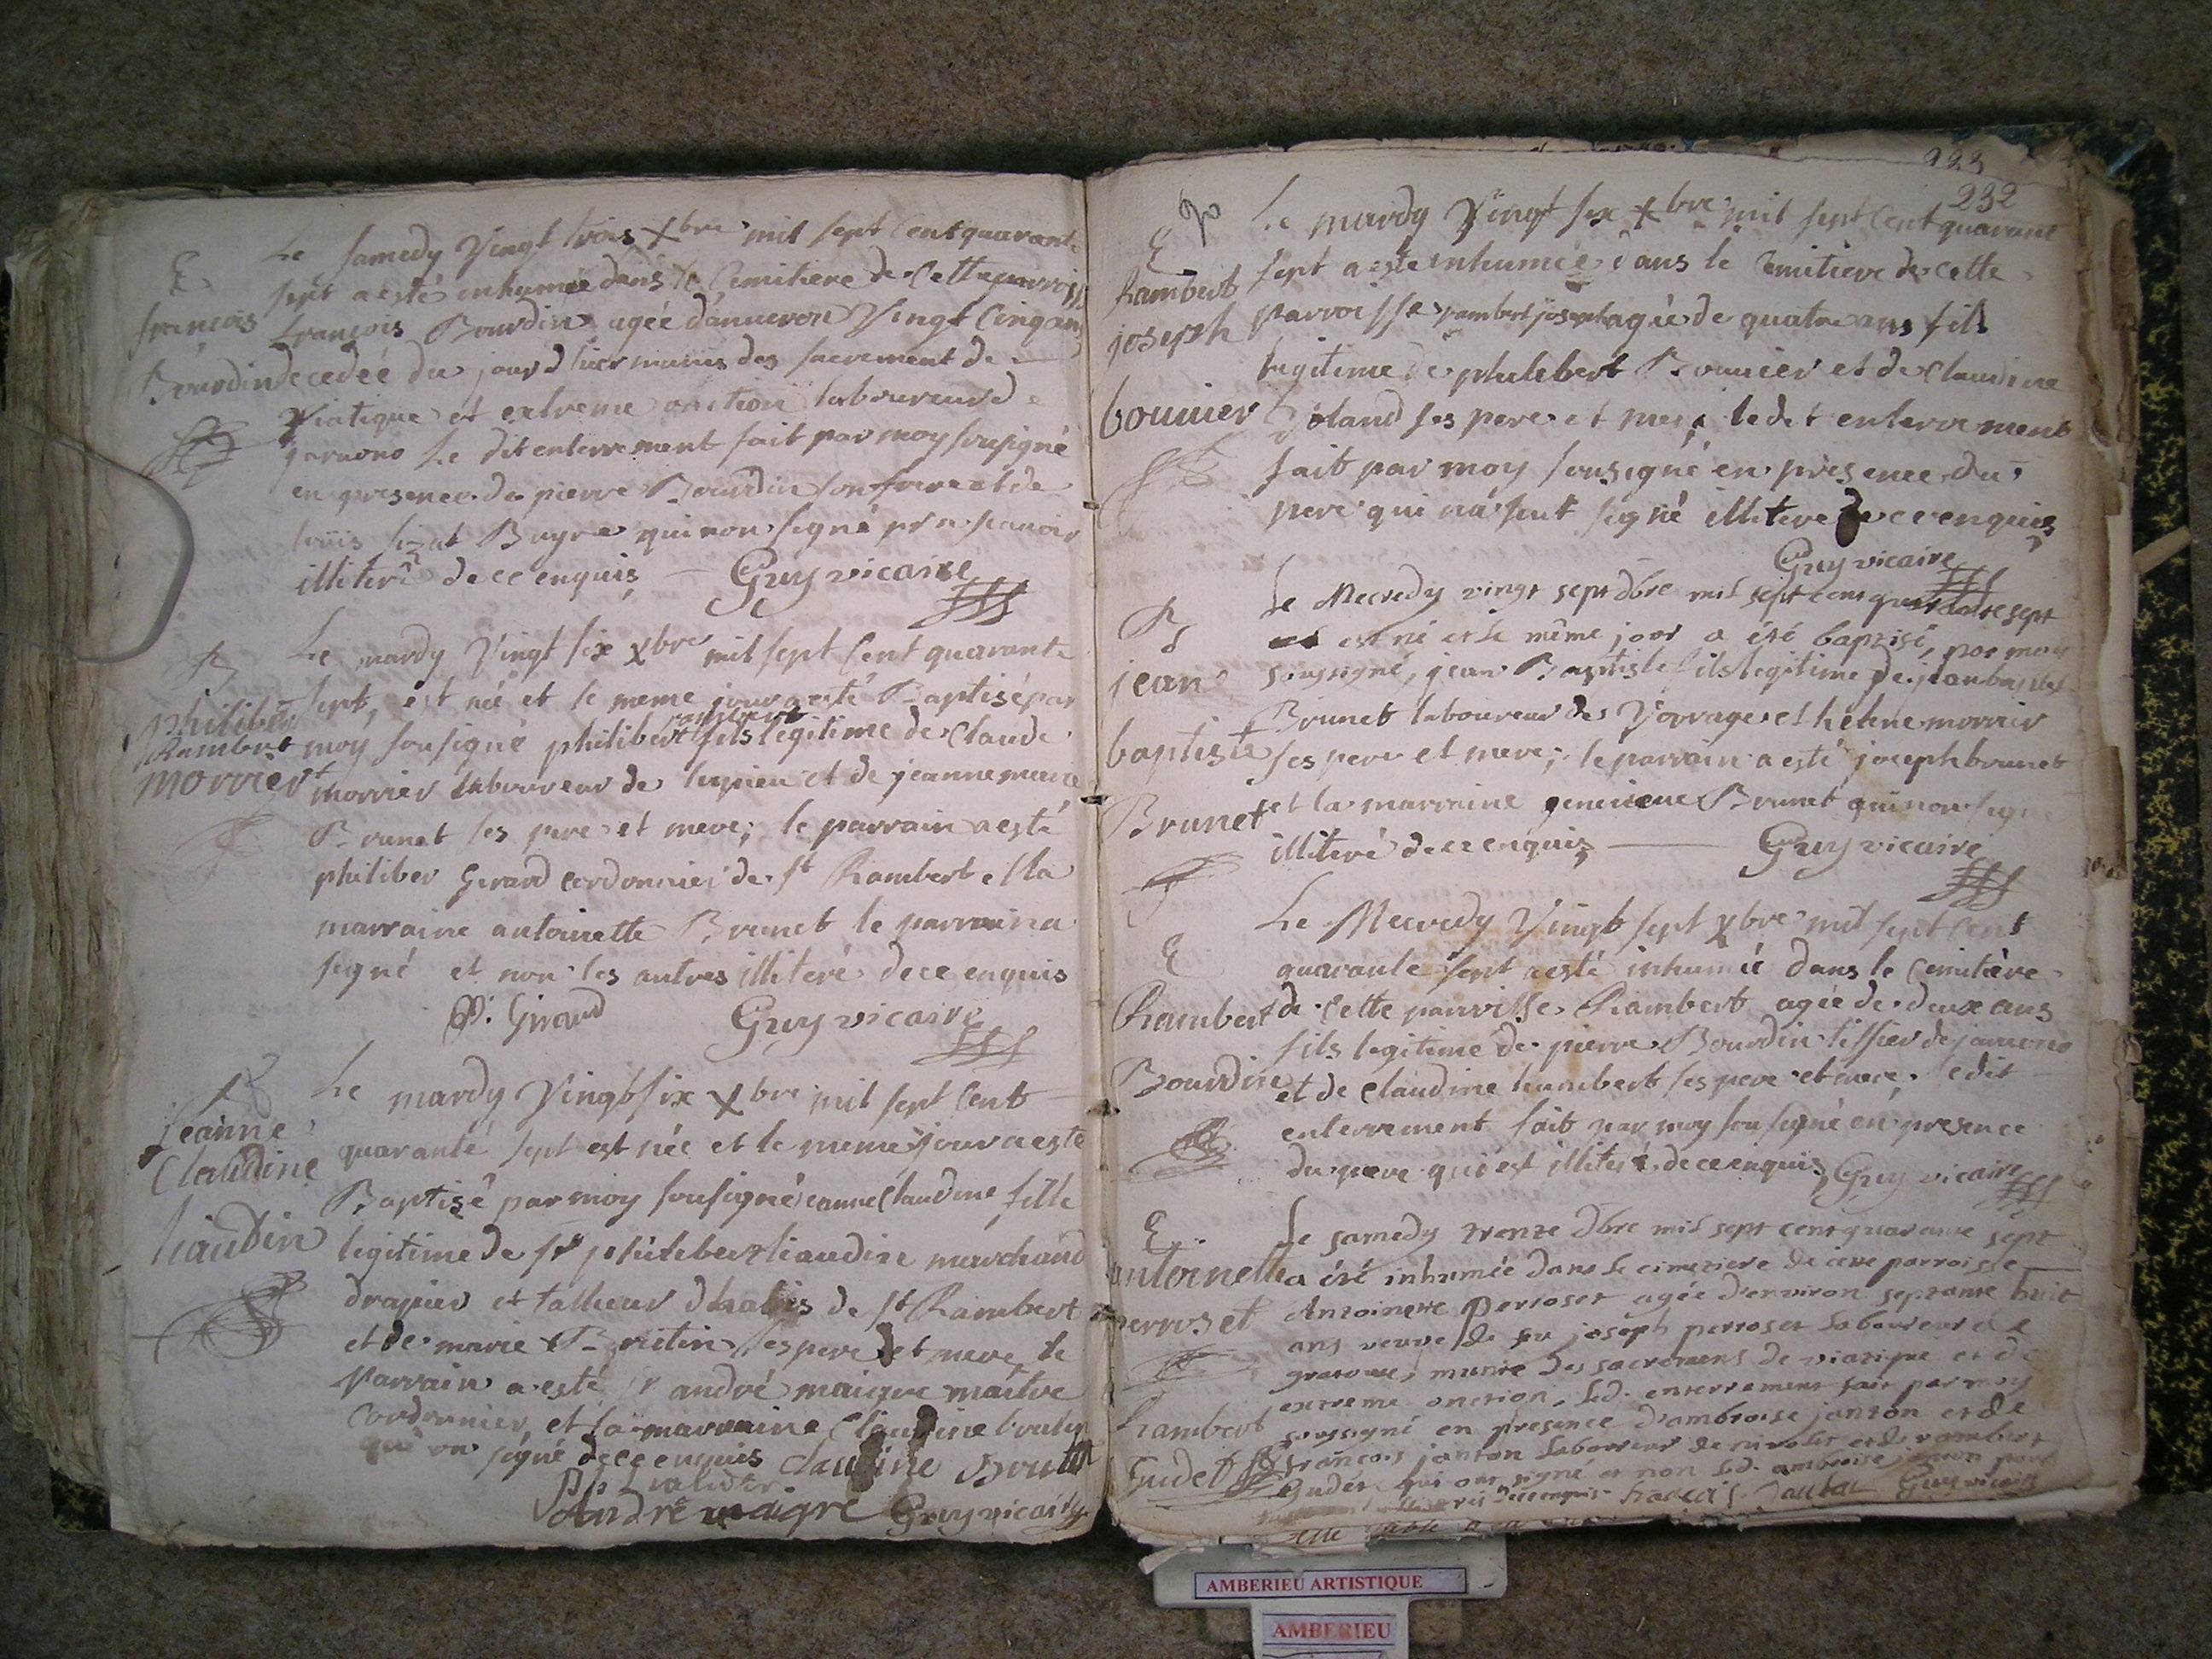 E
françois
Bourdin
Le samedy Vingt trois xbre mil sept Cent quarante
sept a esté inhumée dans le Cemitiere de Cette parroiss
françois Bourdin agée d'anueron Vingt Cinq ans
decedée du jour d'hier munis des sacrement de
Viatique et extreme onction laboureur de
Le dit enterrement fait par moy sousigné
en presence de pierre Bourdin son frere et de
Buyre qui non signé pr n scauoir
illiteré de ce enquis Guy vicaire
B
philibert
Rambert
morrier
Le mardy Vingt six xbre mil sept Cent quarante
sept, est né et le meme jour a esté Baptisé par
rambert
moy sousigné philibert fils legitime de Claude
morrier laboureur de lupieu et de jeanne marie
Brunet ses pere et mere; le parrain a esté
philiber Girard cordonnier de st Rambert et la
marraine antoinette Brunet le parrain a
signé et non les autres illiteré de ce enquis
P. Giraud Guy vicaire
B
jeanne
Claudine
liaudin
Le mardy Vingt six xbre mil sept Cent
quarante sept est née et le meme jour a esté
Baptisé par moy sousigné jeanne Claudine fille
legitime de sr philebert liaudin marchand
drapier et tallieur dhabis de st Rambert
et de marie Bretin ses pere et mere, le
parrain a esté sr andré maigre maitre
Cordonnier, et la marraine Claudine
qui on signé de ce enquis Claudine
André magre Guy vicaire
232
E
Rambert
joseph
bouuier
Le mardy Vingt six xbre mil sept Cent quarante
sept a esté inhumée dans le Cemitiere de cette
parroisse rambert joseph agée de quatre ans fils
legitime de philebert Bouuier et de Claudine
joland ses pere et mere ledit enterrement
fait par moy sousigné en presence du
pere qui na seut signé illitere de ce enquis
Guy vicaire
B
jean
baptiste
Brunet
Le Mecredy vingt sept dbre mil sept cent quarante sept
est né et le même jour a été baptisé, par moy
soussigné, jean Baptiste fils legitime de jean baptiste
Brunet laboureur de Vorrage et helene morrier
ses pere et mere; le parrain a esté joseph brunet
et la marraine geneuieue Brunet qui non signé
illiteré de ce enquis Guy vicaire
E
Rambert
Bourdin
Le Mecredy Vingt sept xbre mil sept Cent
quarante sept a esté inhumée dans le Cemitiere
de Cette parroisse Rambert agée de deux ans
fils legitime de pierre Bourdin tissier de
et de Claudine humbert ses pere et mere, ledit
enterrement fait par moy sousigné en presence
du pere qui est illiteré de ce enquis Guy vicaire
E
antoinette
perroset
Rambert
Gudet
Le samedy trente dbre mil sept cent quarante sept
a été inhumée dans le cimetiere de cette parroisse
Antoinette perroset agée d'environ septante huit
ans veuve de feu joséph perroset laboureur de
munie des sacremens de viatique et de
extreme onction, led. enterrement fait par moy
soussigné en presence d'ambroise janton et de
françois janton laboureur de et de rambert
Gudet qui ont signé et non led. ambroise janton pour
de ce enquis françois Guy vicaire
AMBERIEU ARTISTIQUE
AMBERIEU